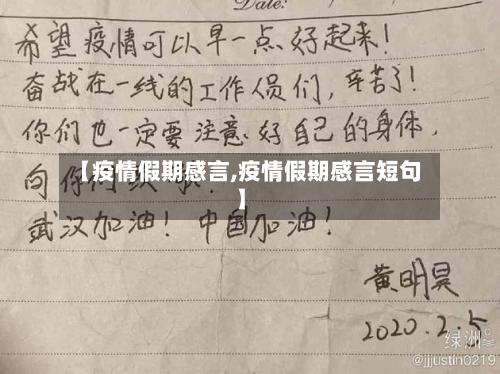 Date:
希望疫情可以早一点好起来！
奋战在一线的工作人员们，辛苦了！
你们也一定要注意好自己的身体，
【疫情假期感言,疫情假期感言短句
】
向你们
武汉加油！中国加油！
黄明昊
2020.2.5
绿洲
@jjjustin0219